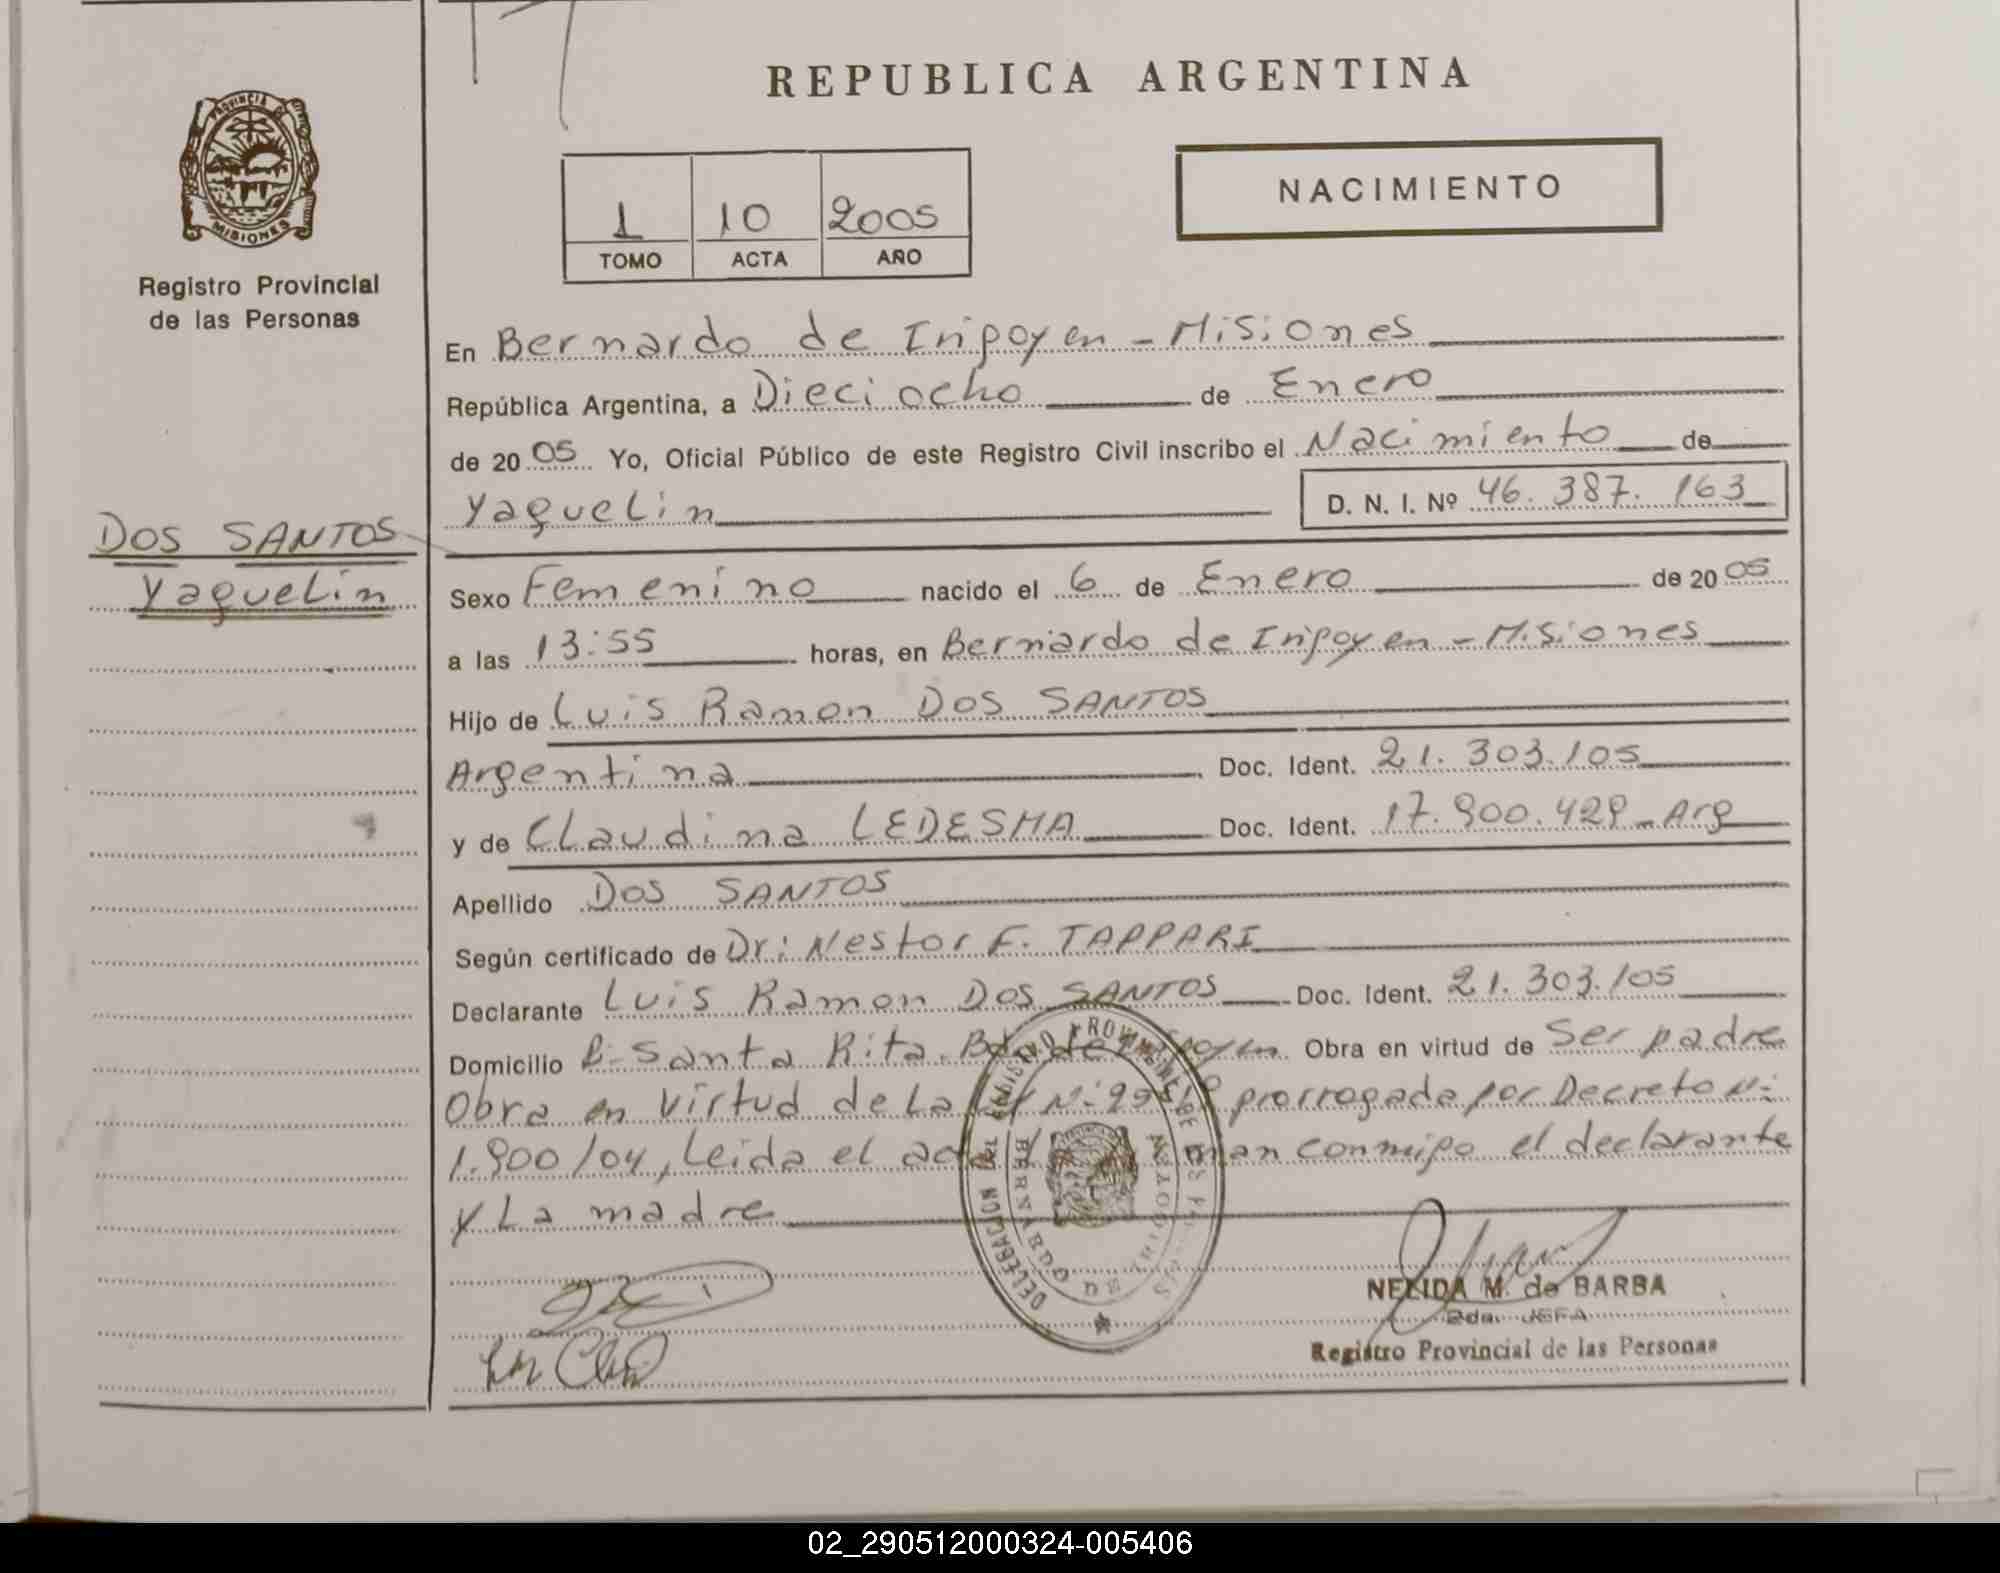 REPUBLICA ARGENTINA
PROVINCIA DE
MISIONES
Registro Provincial
de las Personas
1 10 2005
TOMO ACTA AÑO
NACIMIENTO
En Bernardo de Irigoyen - Misiones
República Argentina, a Dieciocho de Enero
de 2005 Yo, Oficial Público de este Registro Civil inscribo el Nacimiento de
Yaquelin D. N. I. Nº 46.387.163
DOS SANTOS
Yaquelin
Sexo Femenino nacido el 6 de Enero de 2005
a las 13:55 horas, en Bernardo de Irigoyen - Misiones
Hijo de Luis Ramon DOS SANTOS
Argentina Doc. Ident. 21.303.105
y de Claudina LEDESMA Doc. Ident. 17.900.429 - Arg
Apellido DOS SANTOS
Según certificado de Dr: Nestor F. TAPPARI
Declarante Luis Ramon DOS SANTOS Doc. Ident. 21.303.105
Domicilio B- Santa Rita. Obra en virtud de Ser padre
Obra en virtud de La prorrogada por Decreto N:
1.900/04, Leida el conmigo el declarante
y La madre
DELEGACION DEL REGISTRO PROVINCIAL DE LAS PERSONAS
BERNARDO DE
NELIDA M. de BARBA
2da. JEFA
Registro Provincial de las Personas
02_290512000324-005406